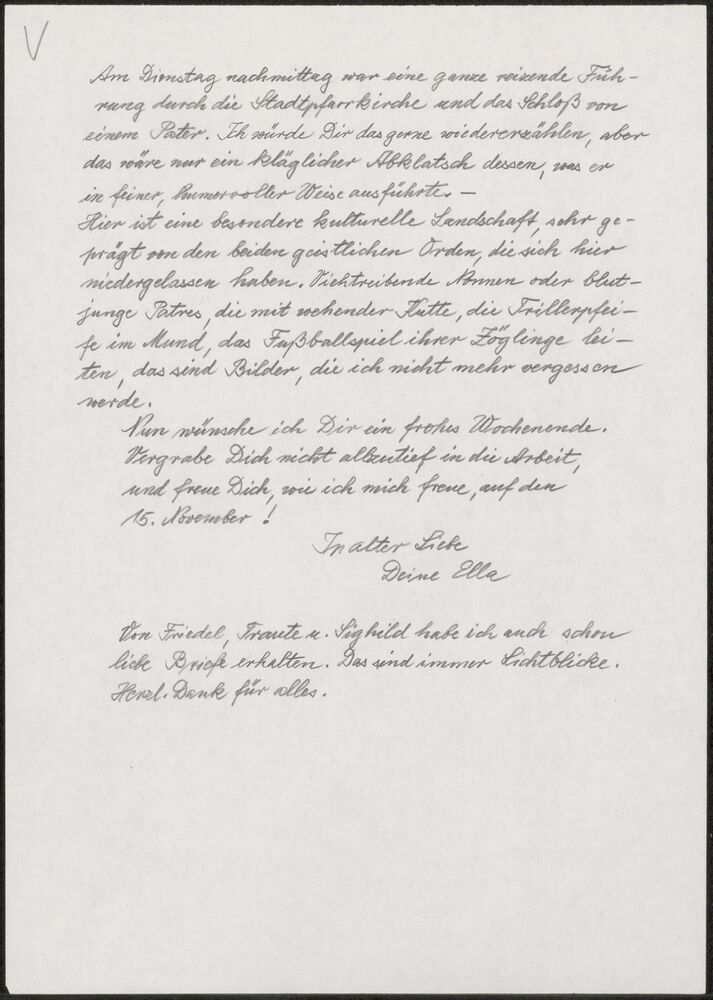 Am Dienstag nachmittag war eine ganze reizende Füh-
rung durch die Stadtpfarrkirche und das Schloß von
einem Pater. Ich würde Dir das gerne wiedererzählen, aber
das wäre nur ein kläglicher Abklatsch dessen, was er
in feiner, humorvoller Weise ausführte. —
Hier ist eine besondere kulturelle Landschaft, sehr ge-
prägt von den beiden geistlichen Orden, die sich hier
niedergelassen haben. Viehtreibende Nonnen oder blut-
junge Patres, die mit wehender Kutte, die Trillerpfei-
fe im Mund, das Fußballspiel ihrer Zöglinge lei-
ten, das sind Bilder, die ich nicht mehr vergessen
werde.
Nun wünsche ich Dir ein frohes Wochenende.
Vergrabe Dich nicht allzutief in die Arbeit,
und freue Dich, wie ich mich freue, auf den
15. November!
In alter Liebe
Deine Ella
Von Friedel, Traute u. Sighild habe ich auch schon
liebe Briefe erhalten. Das sind immer Lichtblicke.
Herzl. Dank für alles.